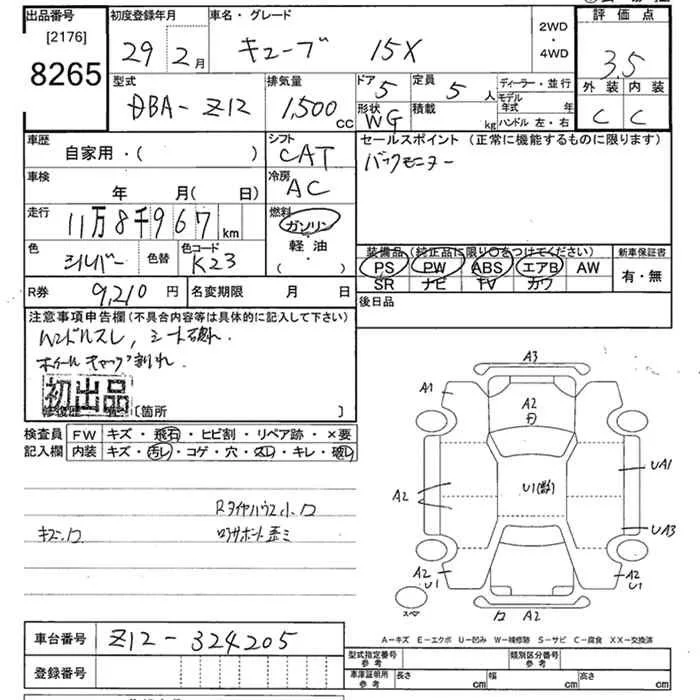 出品番号
[2176]
8265
初度登録年月
29年 2月
車名・グレード
キューブ 15X
2WD
・
4WD
評価点
3.5
外装 内装
C C
型式
DBA-Z12
排気量
1,500 cc
ドア 5
形状 WG
定員 5 人
積載 kg
ディーラー・並行
モデル年式 年
ハンドル 左・右
車歴
自家用・( )
シフト
CAT
セールスポイント (正常に機能するものに限ります)
バックモニター
車検
年 月( 日)
冷房
AC
走行
11万8千967km
燃料
ガソリン
・
軽油
・
( )
色
シルバー
色替
色コード
K23
装備品 (純正品に限り○をつけてください)
PS PW ABS エアB AW
SR ナビ TV カワ
新車保証書
有・無
R券 9,210円
名変期限 月 日
後日品
注意事項申告欄(不具合内容等は具体的に記入して下さい)
Wンドルスレ, シート破れ.
ホイールキャップ割れ
初出品
[箇所 ]
検査員記入欄
FW キズ・飛石・ヒビ割・リペア跡・×要
内装 キズ・汚レ・コゲ・穴・スレ・キレ・破レ
Rタイヤハウス小凹
キズ・凹
ロアサポート歪ミ
A3
A1
A2
A2
U1(数)
UA1
UA3
A2
U1
A2
U1
スペア
凹 A2
A-キズ E-エクボ U-凹み W-補修跡 S-サビ C-腐食 XX-交換済
車台番号
Z12-324205
登録番号
型式指定番号
参考
類別区分番号
参考
車庫証明用
参考
長さ cm
幅 cm
高さ cm